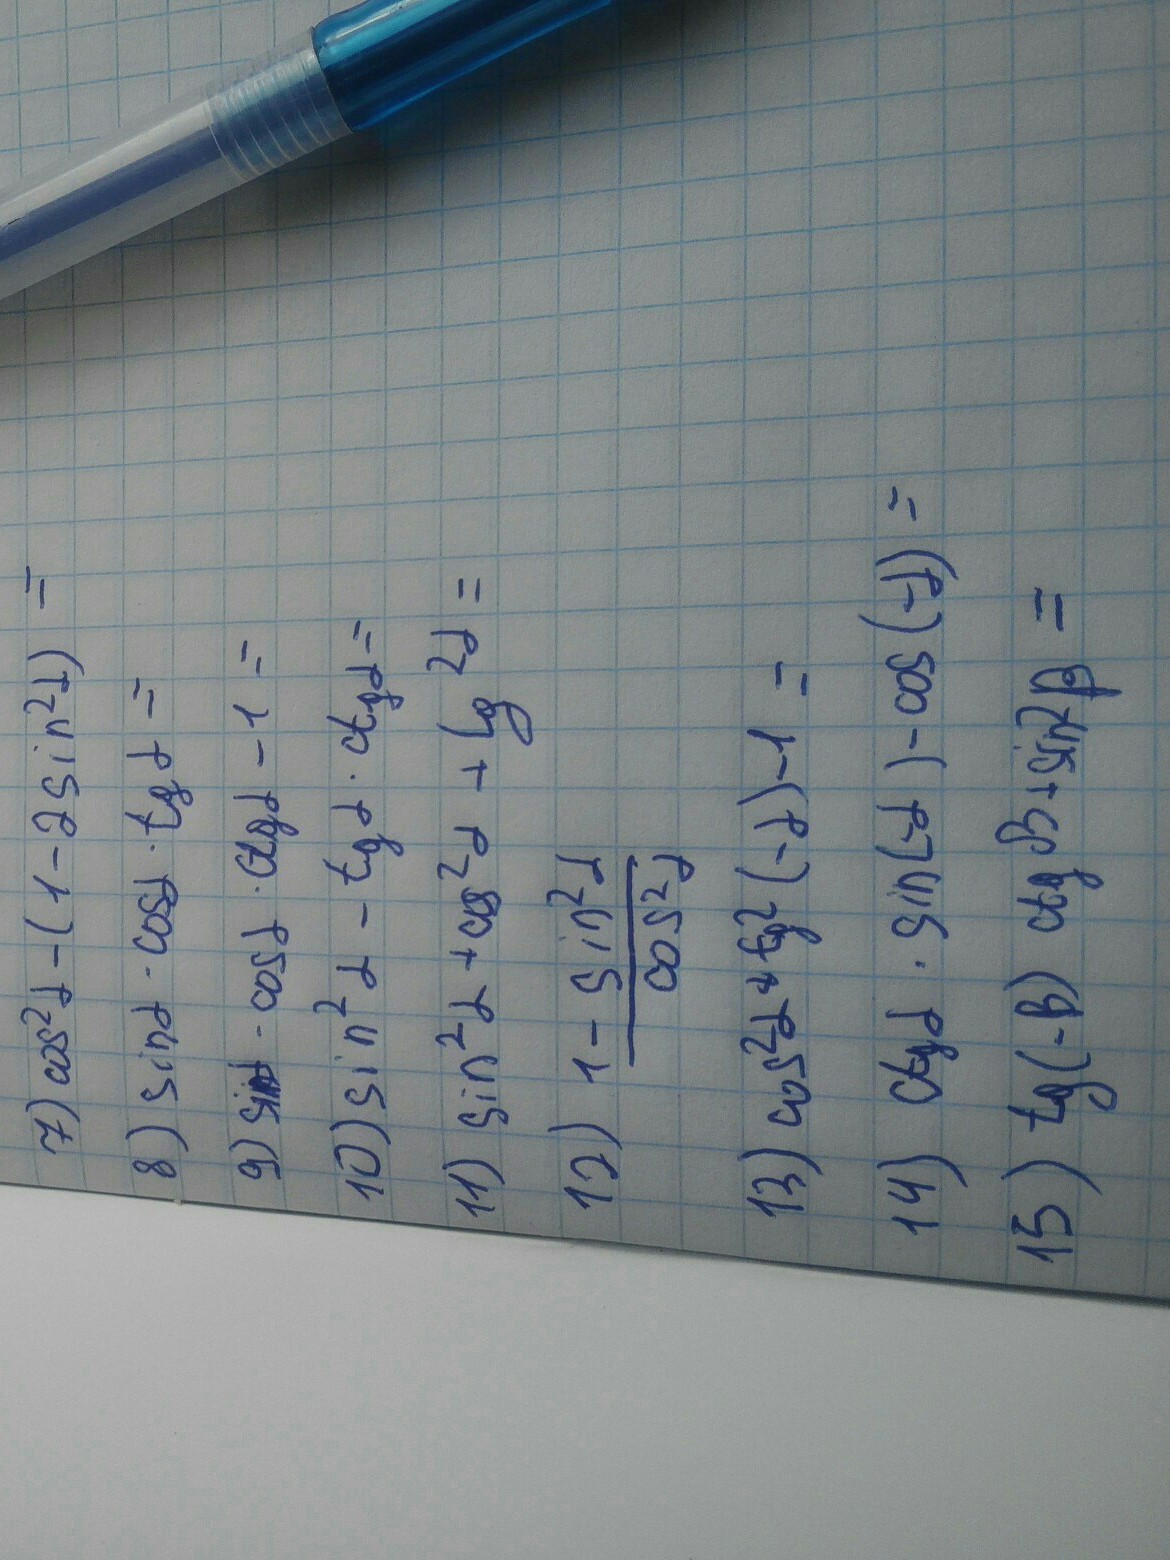 7) cos²α-(1-2sin²α) =
8) sinα·cosα·tgα =
9) sinα·cosα·ctgα-1 =
10) sin²α-tgα·ctgα=
11) sin²α+cos²α+tg²α =
12) 1-sin²α
cos²α
13) cos²α+tg²(-α)-1 =
14) ctgα·sin(-α)-cos(-α) =
15) tg(-β) ctgβ+sin²β =